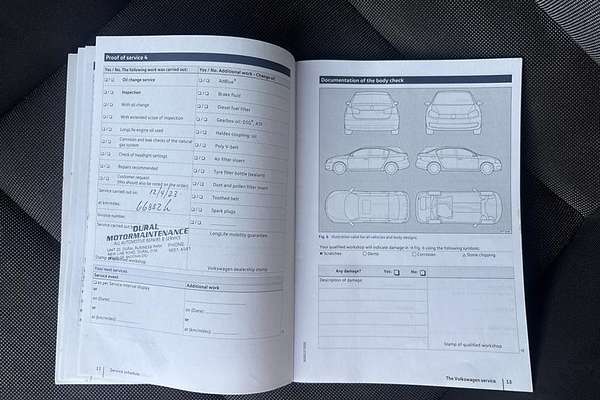 Proof of service 4
Yes / No, The following work was carried out:
Oil change service
Inspection
With oil change
With extended scope of inspection
LongLife engine oil used
Corrosion and leak checks of the natural
gas system
Check of headlight settings
Repairs recommended
Customer request
(this should also be noted on the order)
Service carried out on
12/4/23
at km/miles:
Invoice number:
Service carried out
DURAL
MOTORMAINTENANCE
ALL AUTOMOTIVE REPAIRS & SERVICE
PHONE
Your next services
Service event
as per Service interval display
or
on (Date):
or
at (km/miles):
Yes / No. Additional work - Change oil
AdBlue®
Brake fluid
Diesel fuel filter
Gearbox oil: DSG®, ATF
Haldex coupling: oil
Poly V-belt
Air filter insert
Tyre filler bottle (sealant)
Dust and pollen filter insert
Toothed belt
Spark plugs
LongLife mobility guarantee
Volkswagen dealership stamp
Additional work
or
on (Date):
or
at (km/miles):
12
Service schedule
Documentation of the body check
Fig. 6 Illustration valid for all vehicles and body designs.
Your qualified workshop will indicate damage in Fig. 6 using the following symbols:
Scratches
Dents
Corrosion
Stone chipping
Any damage? Yes: No:
Description of damage
Stamp of qualified workshop
The Volkswagen service
13